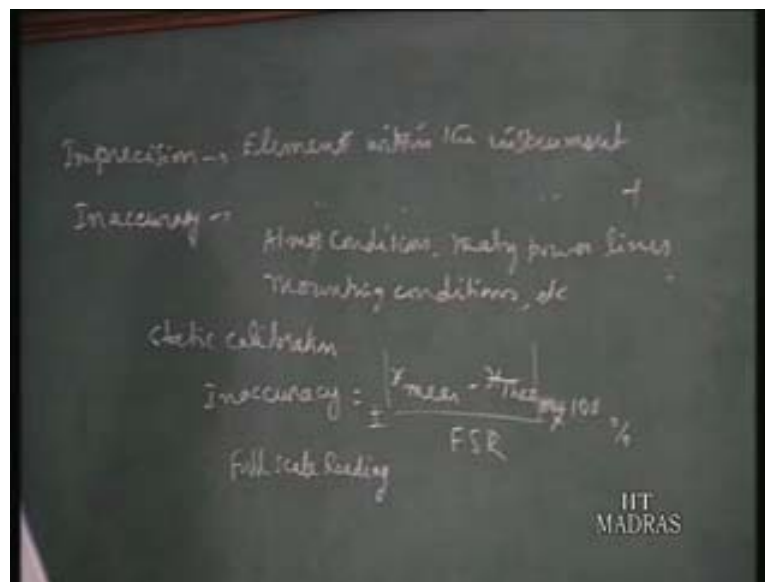 Imprecision → Elements within the instrument
Inaccuracy → " " " +
Atmos Conditions, nearby power lines
Mounting conditions, etc
Static calibration
Inaccuracy = ± |x meas - x True| max x 100 %
FSR
Full scale Reading
IIT
MADRAS